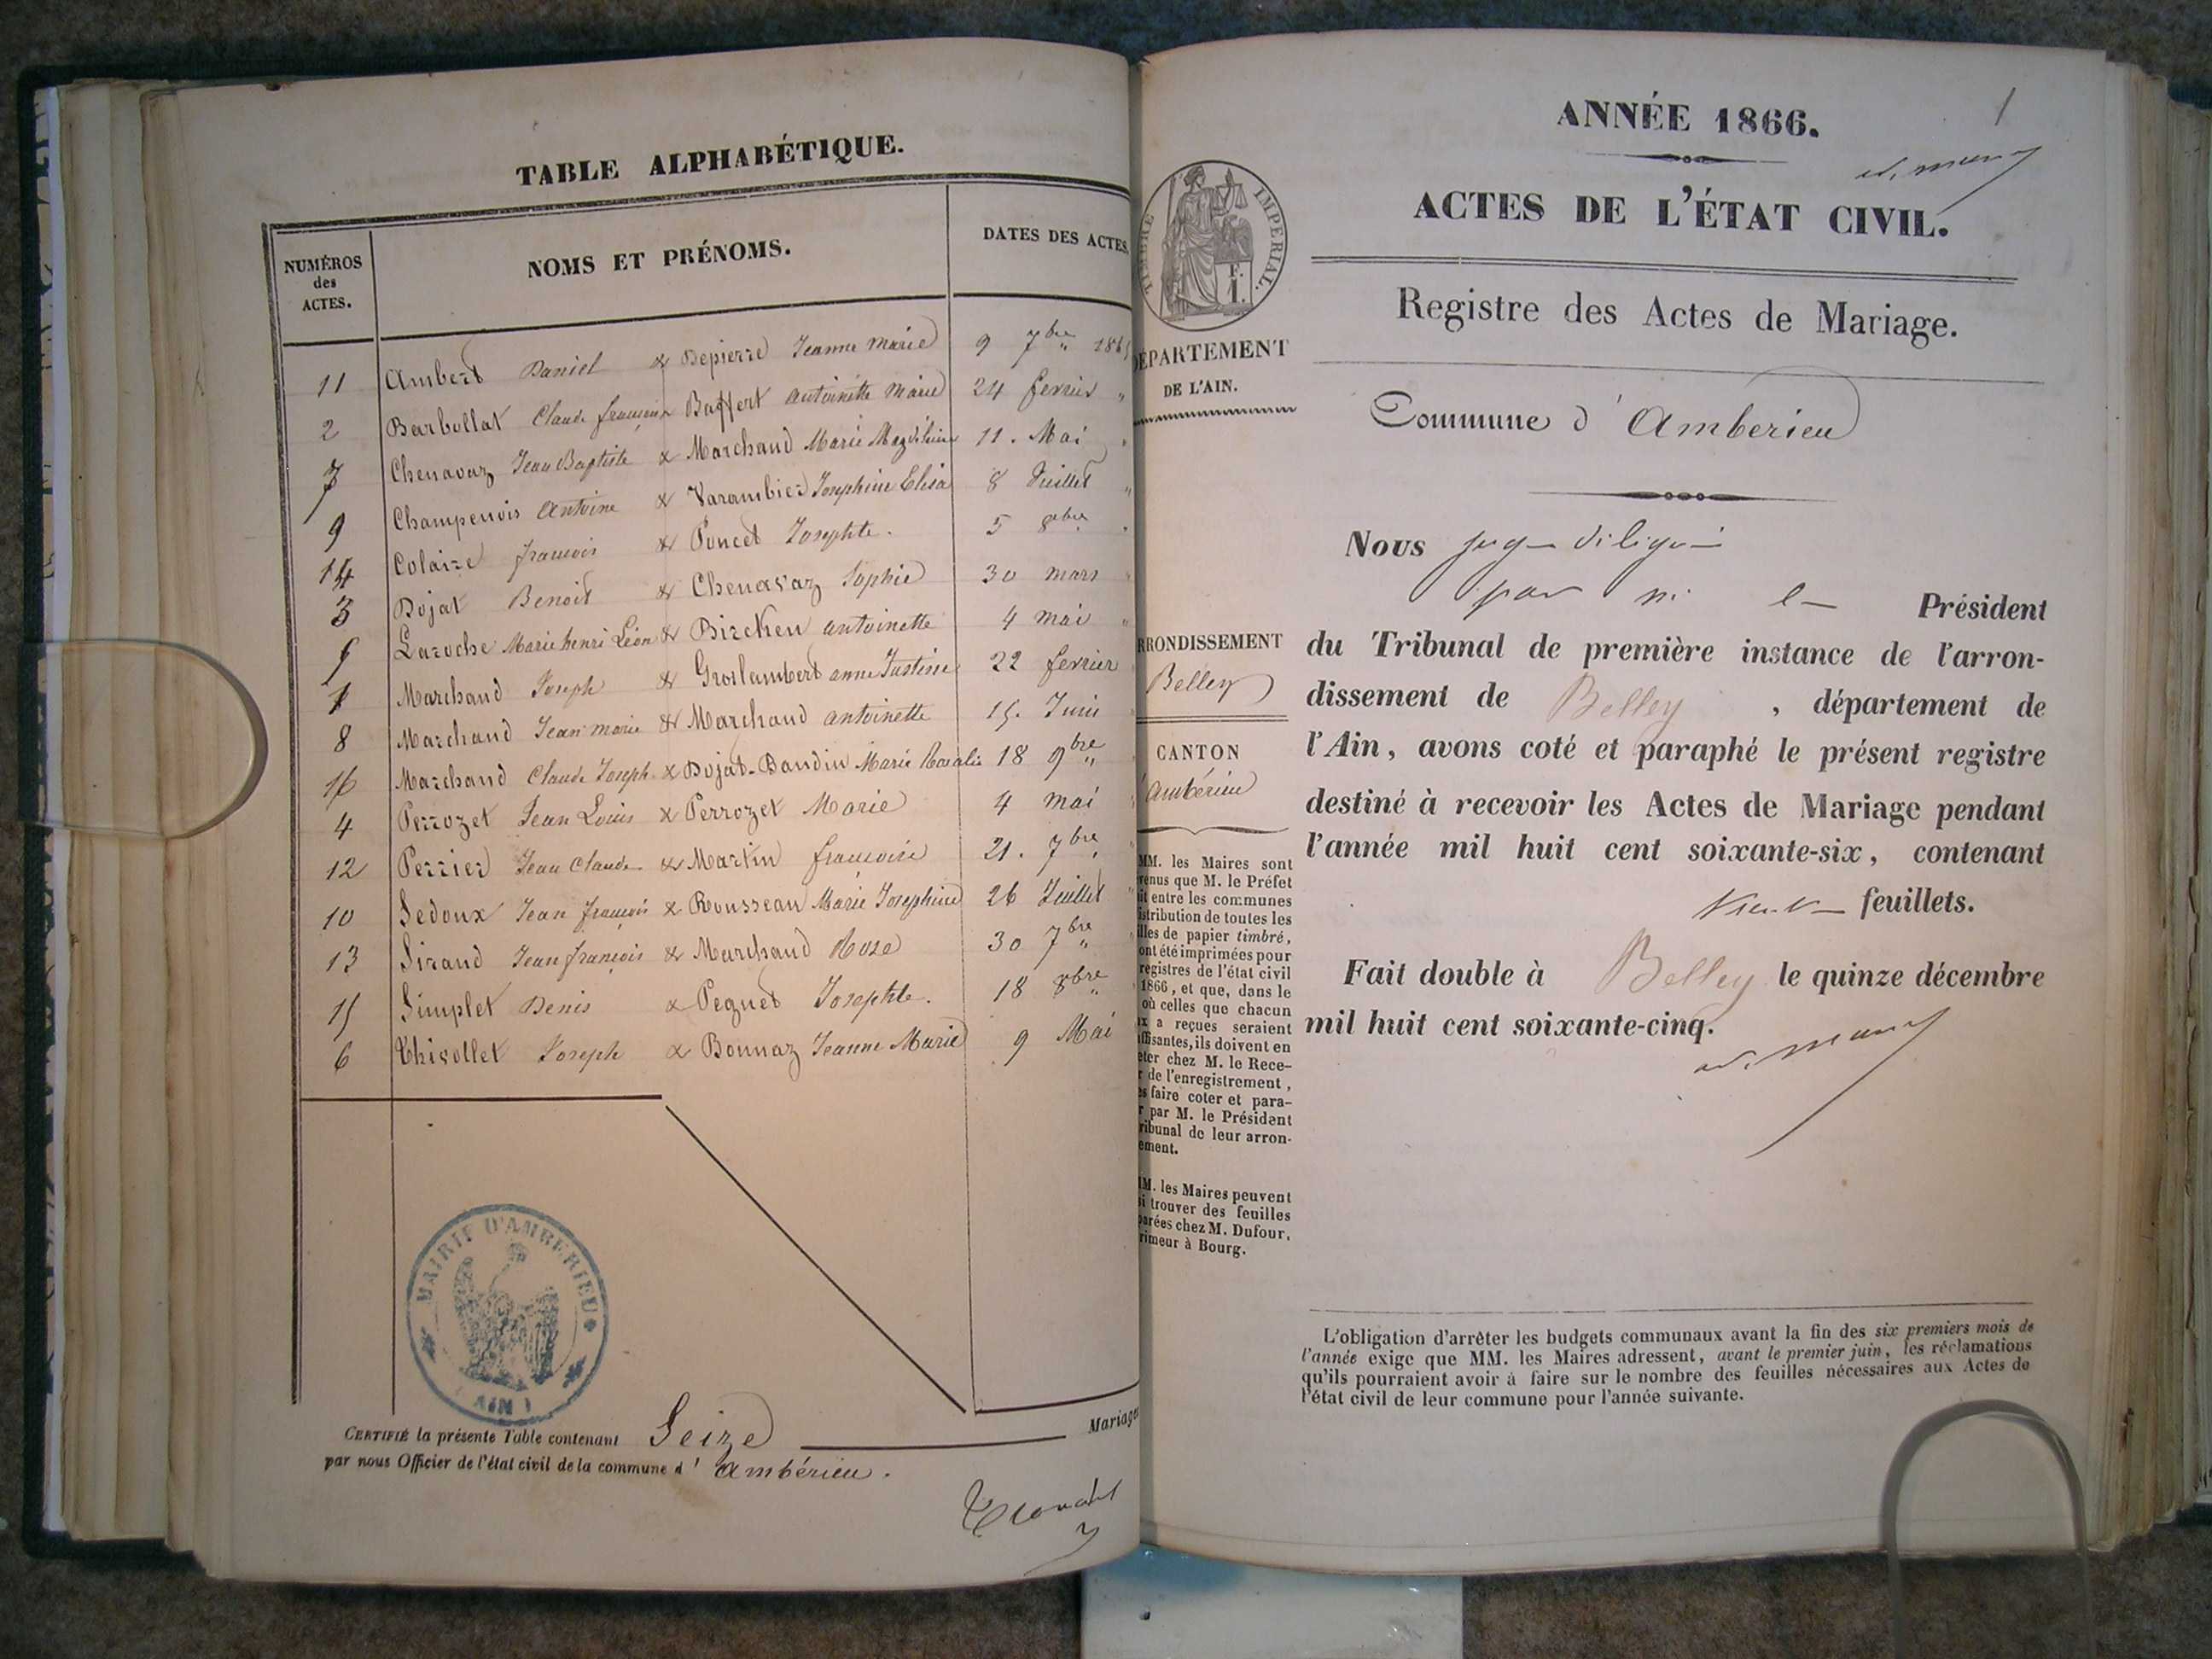 TABLE ALPHABÉTIQUE.
NUMÉROS des ACTES.
NOMS ET PRÉNOMS.
DATES DES ACTES.
11 Ambert Daniel & Depierre Jeanne Marie 9 7bre 1865
2 Barbollat Claude françois & Baffert Antoinette Marie 24 fevrier "
7 Chenavaz Jean Baptiste & Marchand Marie Magdeleine 11. Mai "
9 Champenois Antoine & Varambier Josephine Elisa 8 Juillet "
14 Colaire francois & Poncet Josephte. 5 8bre "
3 Dojat Benoit & Chenavaz Sophie 30 mars "
5 Laroche Marie henri Léon & Bircken antoinette 4 mai "
1 Marchand Joseph & Groslambert anne Justine 22 fevrier
8 Marchand Jean marie & Marchand antoinette 15. Juin
16 Marchand Claude Joseph & Dojat-Bandin Marie Rosalie 18 9bre
4 Perrozet Jean Louis & Perrozet Marie 4 mai
12 Perrier Jean Claude & Martin françoise 21. 7bre
10 Sedoux Jean françois & Rousseau Marie Josephine 26 Juillet "
13 Sirand Jean françois & Marchand Rose 30 7bre "
15 Simplet Denis & Peguet Josephte. 18 8bre "
6 Thivollet Joseph & Bonnaz Jeanne Marie 9 Mai
MAIRIE D'AMBERIEU
(AIN)
CERTIFIÉ la présente Table contenant Seize Mariages
par nous Officier de l'état civil de la commune d' Ambérieu.
1
ANNÉE 1866.
ACTES DE L'ÉTAT CIVIL.
TIMBRE IMPERIAL.
F. I.
Registre des Actes de Mariage.
DÉPARTEMENT
DE L'AIN.
Commune d'Amberieu
Nous juge
par Président
du Tribunal de première instance de l'arron-
dissement de Belley, département de
l'Ain, avons coté et paraphé le présent registre
destiné à recevoir les Actes de Mariage pendant
l'année mil huit cent soixante-six, contenant
feuillets.
Fait double à Belley le quinze décembre
mil huit cent soixante-cinq.
RRONDISSEMENT
Belley
CANTON
Ambérieu
MM. les Maires sont
venus que M. le Préfet
it entre les communes
istribution de toutes les
illes de papier timbré,
ont été imprimées pour
registres de l'état civil
1866, et que, dans le
où celles que chacun
x a reçues seraient
ffisantes, ils doivent en
eter chez M. le Rece-
r de l'enregistrement,
es faire coter et para-
r par M. le Président
ribunal de leur arron-
ement.
M. les Maires peuvent
si trouver des feuilles
parées chez M. Dufour,
rimeur à Bourg.
L'obligation d'arrêter les budgets communaux avant la fin des six premiers mois de
l'année exige que MM. les Maires adressent, avant le premier juin, les réclamations
qu'ils pourraient avoir à faire sur le nombre des feuilles nécessaires aux Actes de
l'état civil de leur commune pour l'année suivante.